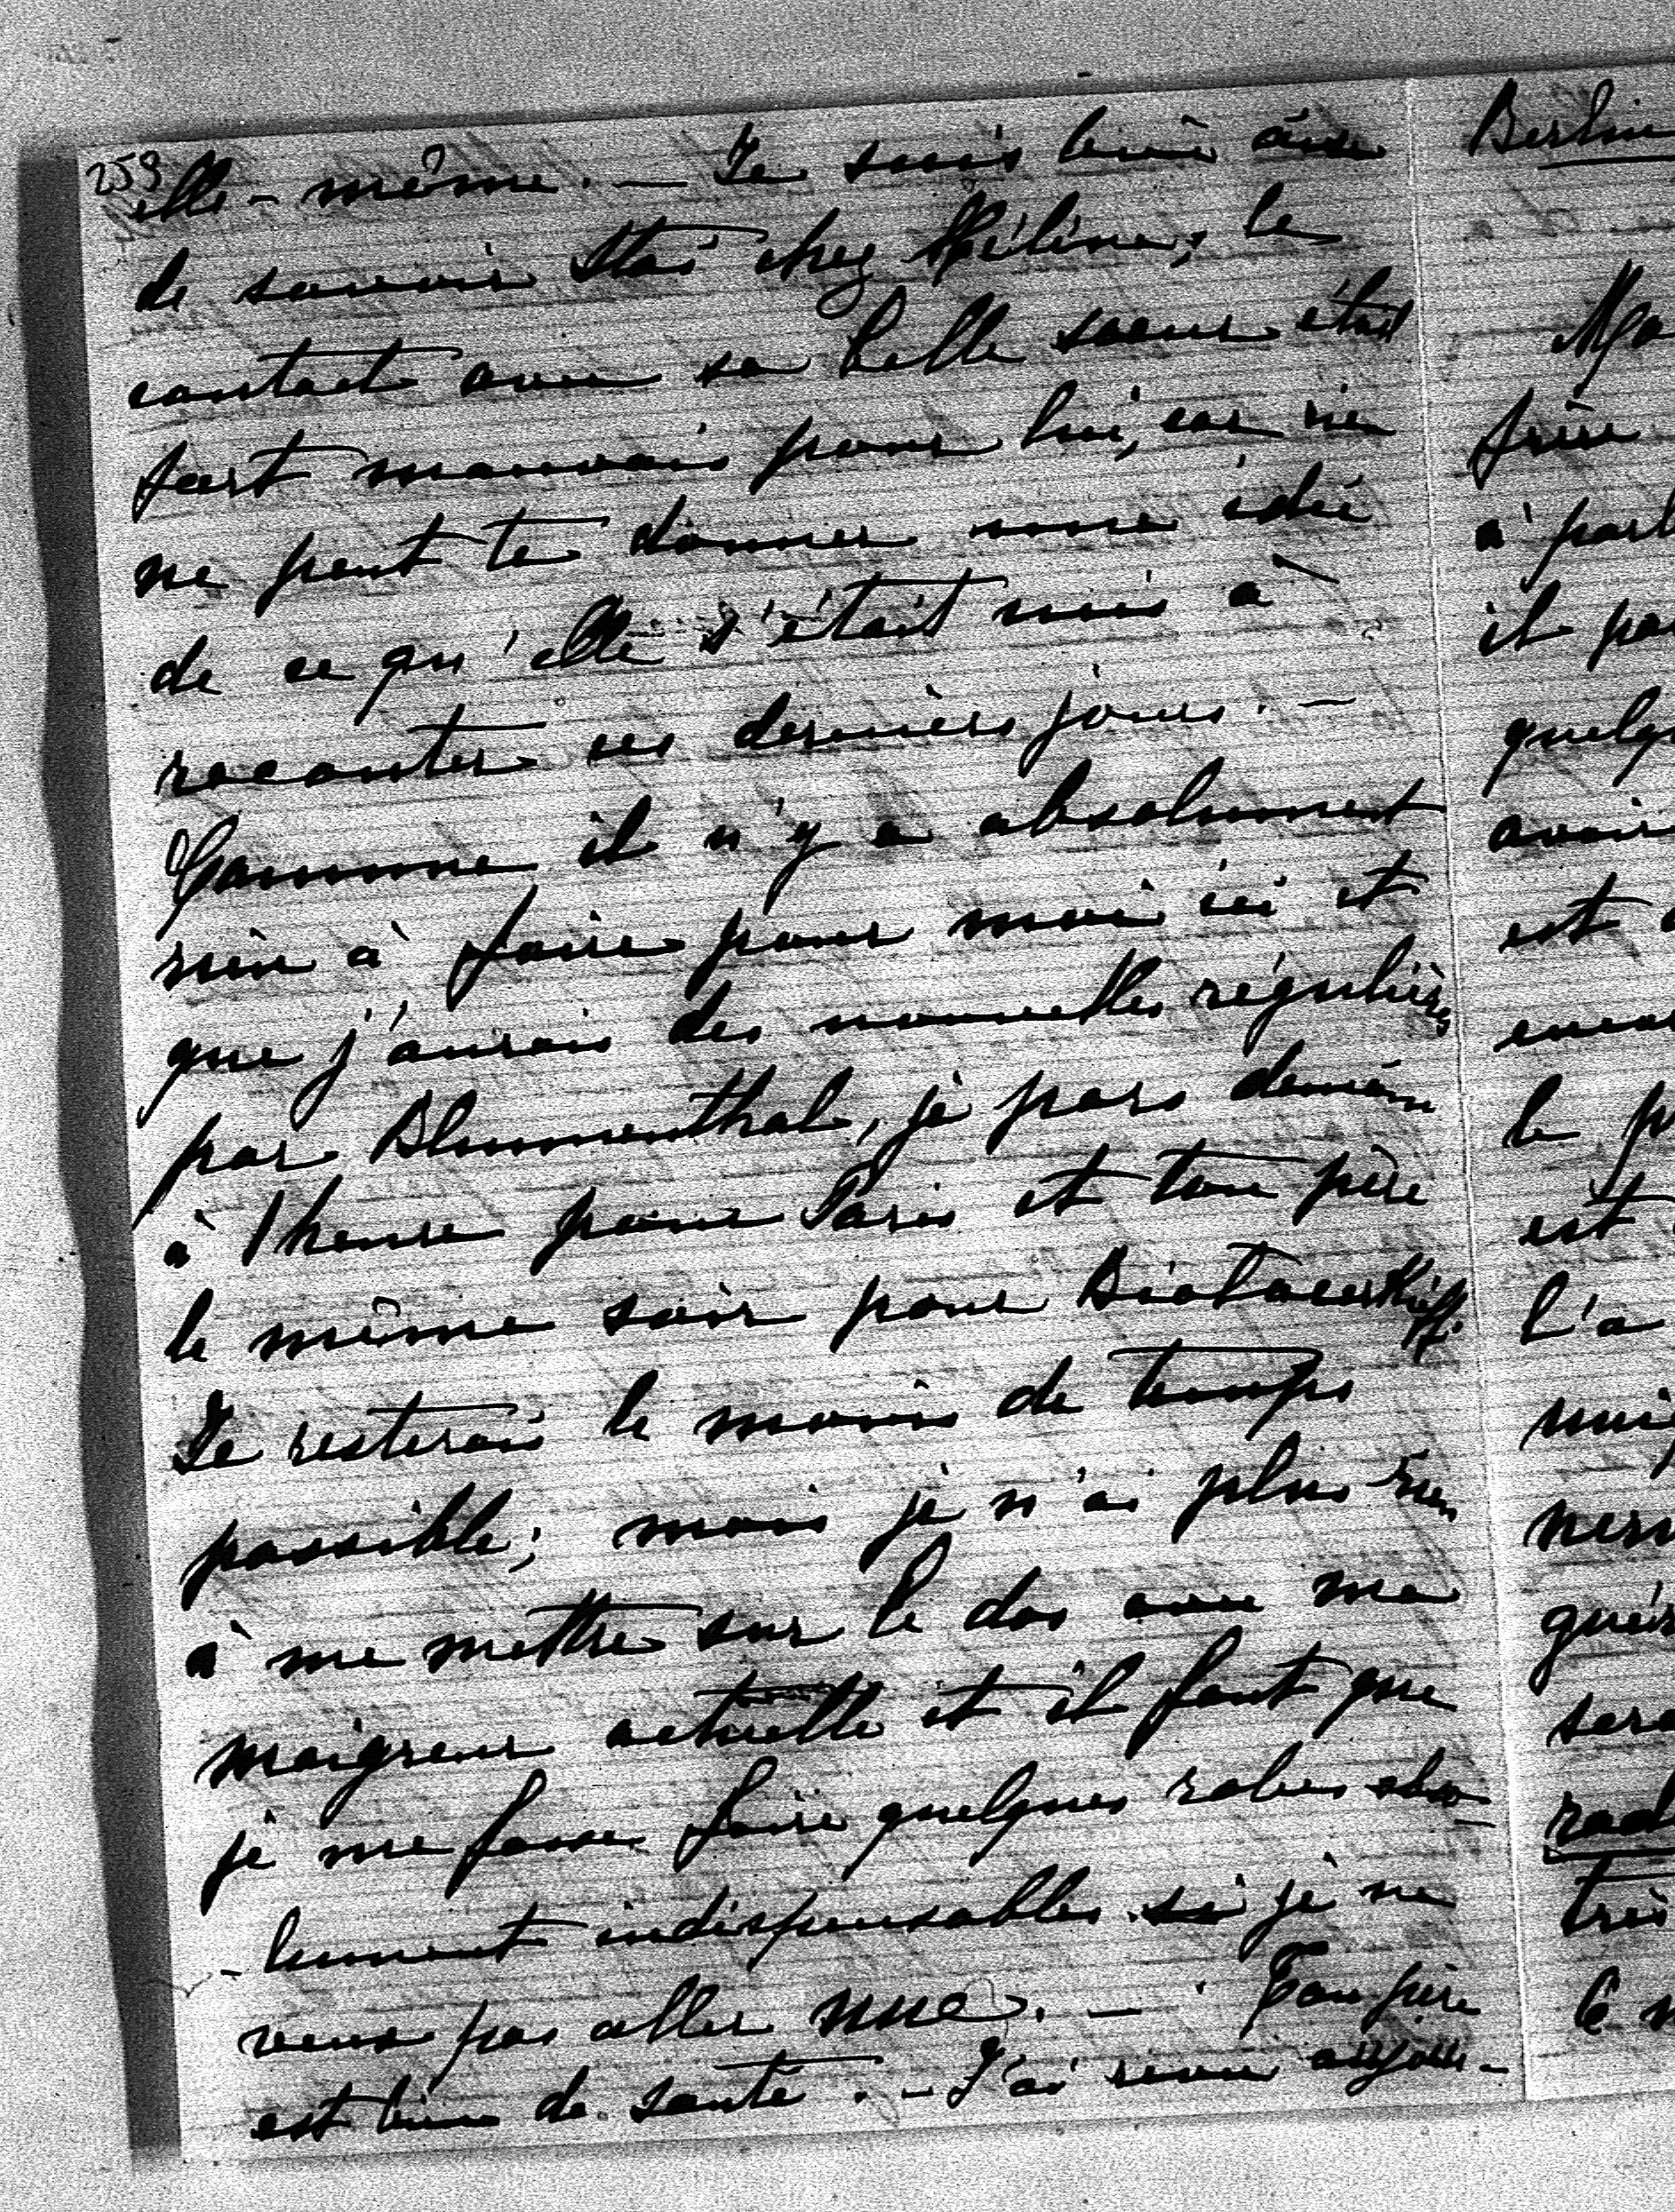 259
elle-même. — Je suis bien aise
de savoir Stas chez Hélène, le
contact avec sa belle soeur était
fort mauvais pour lui, car rien
ne peut te donner une idée
de ce qu'elle s'était mis à
raconter ces derniers jours. —
Comme il n'y a absolument
rien à faire pour moi ici et
que j'aurais des nouvelles régulières
par Blumenthal, je pars demain
à 1 heure pour Paris et ton père
le même soir pour Biatacerkieff.
Je resterais le moins de temps
possible; mais je n'ai plus rien
à me mettre sur le dos avec ma
maigreur actuelle et il faut que
je me fasse faire quelques robes abso-
-lument indispensables si je ne
veux pas aller nue. — Ton père
est bien de santé. — J'ai revu aujour-
Berlin
frère
à part
il
avoir
est
le
est
l'a
très